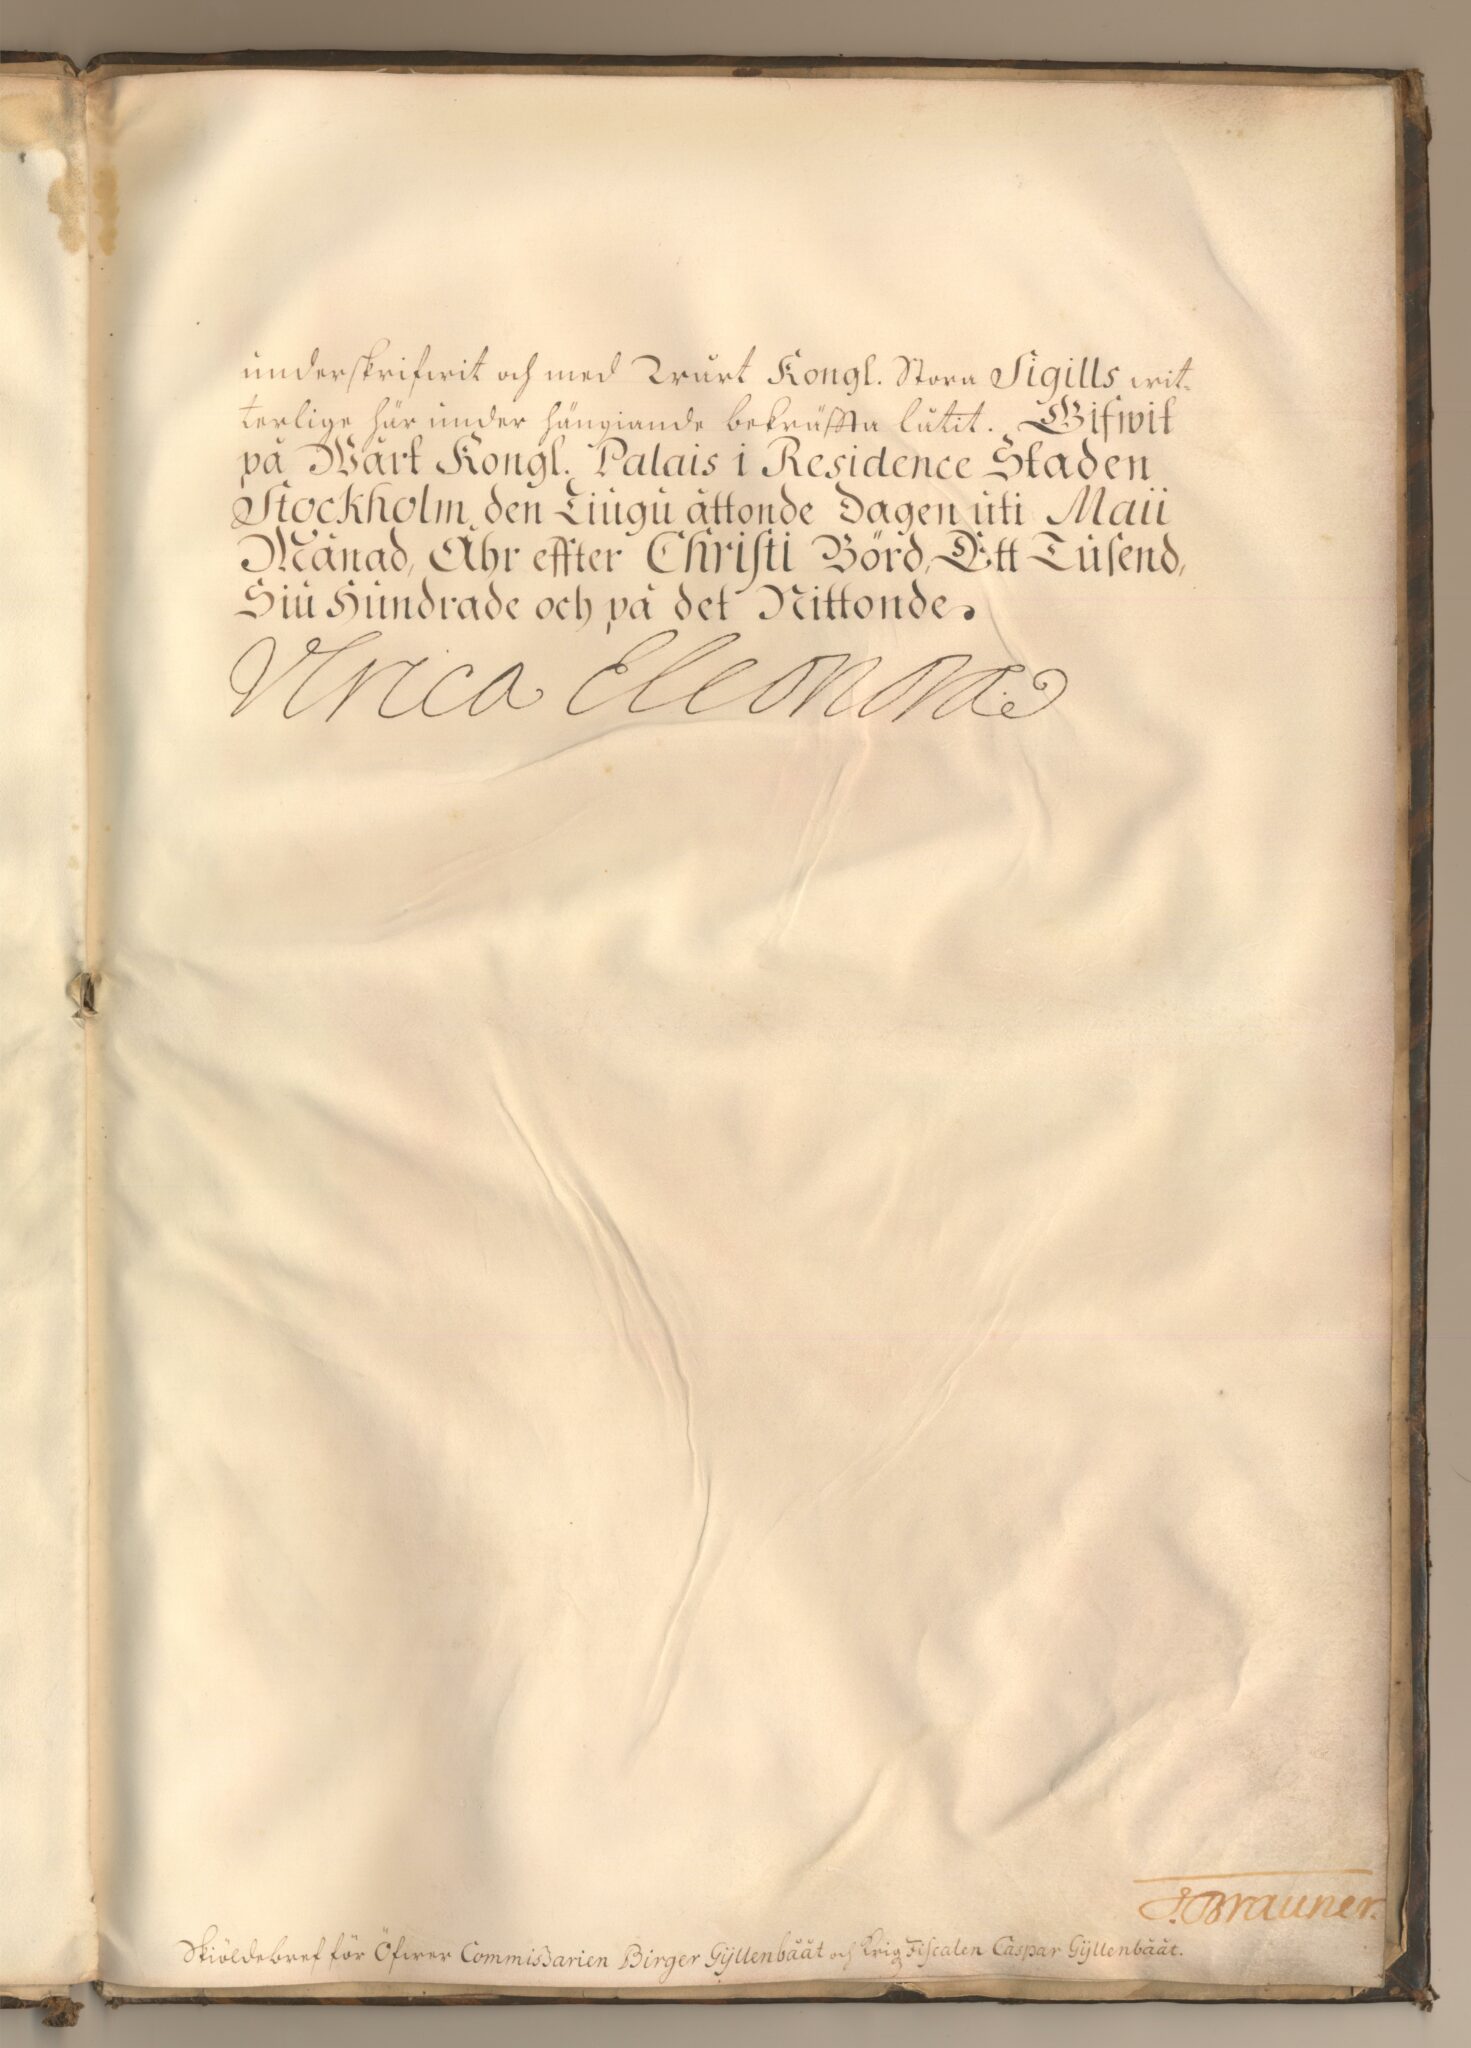 underskrifwit och med Wårt Kongl. Stora Sigills wit-
terlige här under hängiande bekräffta låtit. Gifwit
på Wårt Kongl. Palais i Residence Staden
Stockholm, den Tiugu åttonde Dagen uti Maii
Månad, Åhr effter Christi Börd, Ett Tusend,
Siu Hundrade och på det Nittonde.
Ulrica Eleonora
J. Brauner.
Skiöldebref för Öfwer Commissarien Birger Gyllenbååt och Krigs Fiscalen Caspar Gyllenbååt.